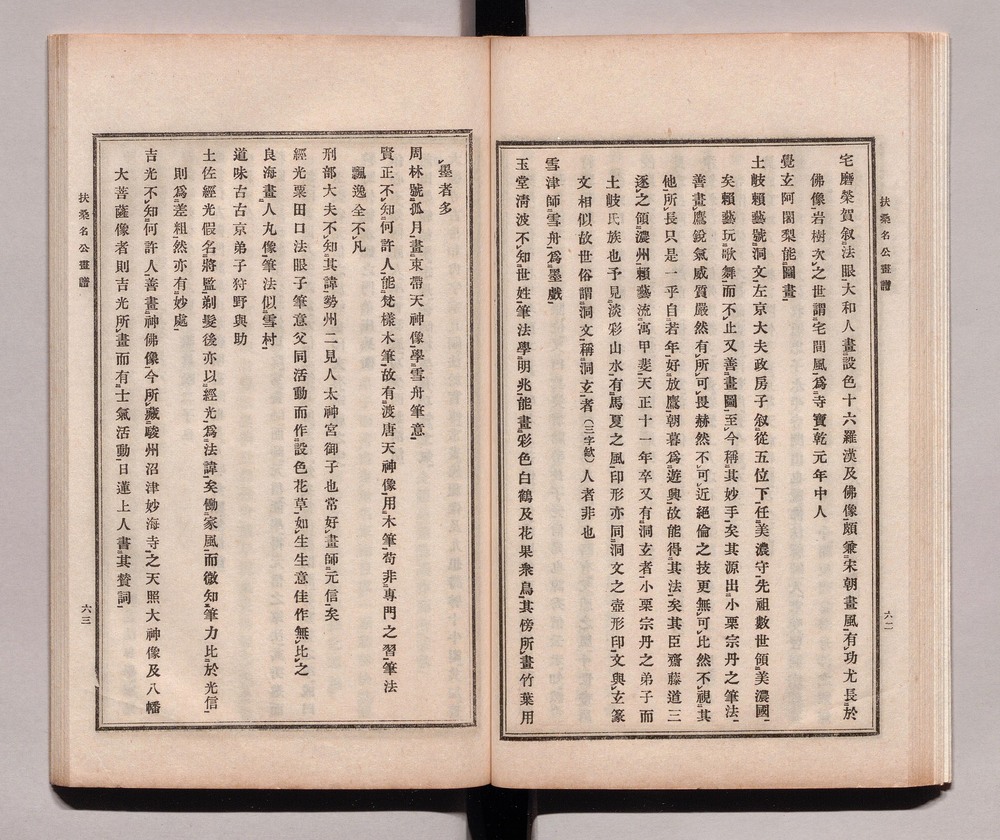 扶桑名公畫譜
宅磨榮賀叙法眼大和人畫設色十六羅漢及佛像頗兼宋朝畫風有功尤長於
佛像岩樹次之世謂宅間風爲寺寶乾元年中人
覺玄阿闍梨能圖畫
土岐賴藝號洞文左京大夫政房子叙從五位下任美濃守先祖數世領美濃國
矣賴藝玩歌舞而不止又善畫圖至今稱其妙手矣其源出小栗宗丹之筆法
善畫鷹銳氣威質嚴然有所可畏赫然不可近絕倫之技更無可比然不視其
他所長只是一乎自若年好放鷹朝暮爲遊興故能得其法矣其臣齋藤道三
逐之領濃州賴藝流寓甲斐天正十一年卒又有洞玄者小栗宗丹之弟子而
土岐氏族也予見淡彩山水有馬夏之風印形亦同洞文之壺形印文與玄篆
文相似故世俗謂洞文稱洞玄者(三字歟)人者非也
雪津師雪舟爲墨戲
玉堂清波不知世姓筆法學明兆能畫彩色白鶴及花果衆鳥其傍所畫竹葉用
六二
墨者多
周林號孤月畫束帶天神像學雪舟筆意
賢正不知何許人能梵樣木筆故有渡唐天神像用木筆苟非專門之習筆法
飄逸全不凡
刑部大夫不知其諱勢州二見人太神宮御子也常好畫師元信矣
經光粟田口法眼子筆意父同活動而作設色花草如生生意佳作無比之
良海畫人丸像筆法似雪村
道味古古京弟子狩野與助
土佐經光假名將監剃髮後亦以經光爲法諱矣働家風而微知筆力比於光信
則爲差粗然亦有妙處
吉光不知何許人善畫神佛像今所藏駿州沼津妙海寺之天照大神像及八幡
大菩薩像者則吉光所畫而有士氣活動日蓮上人書其贊詞
扶桑名公畫譜
六三